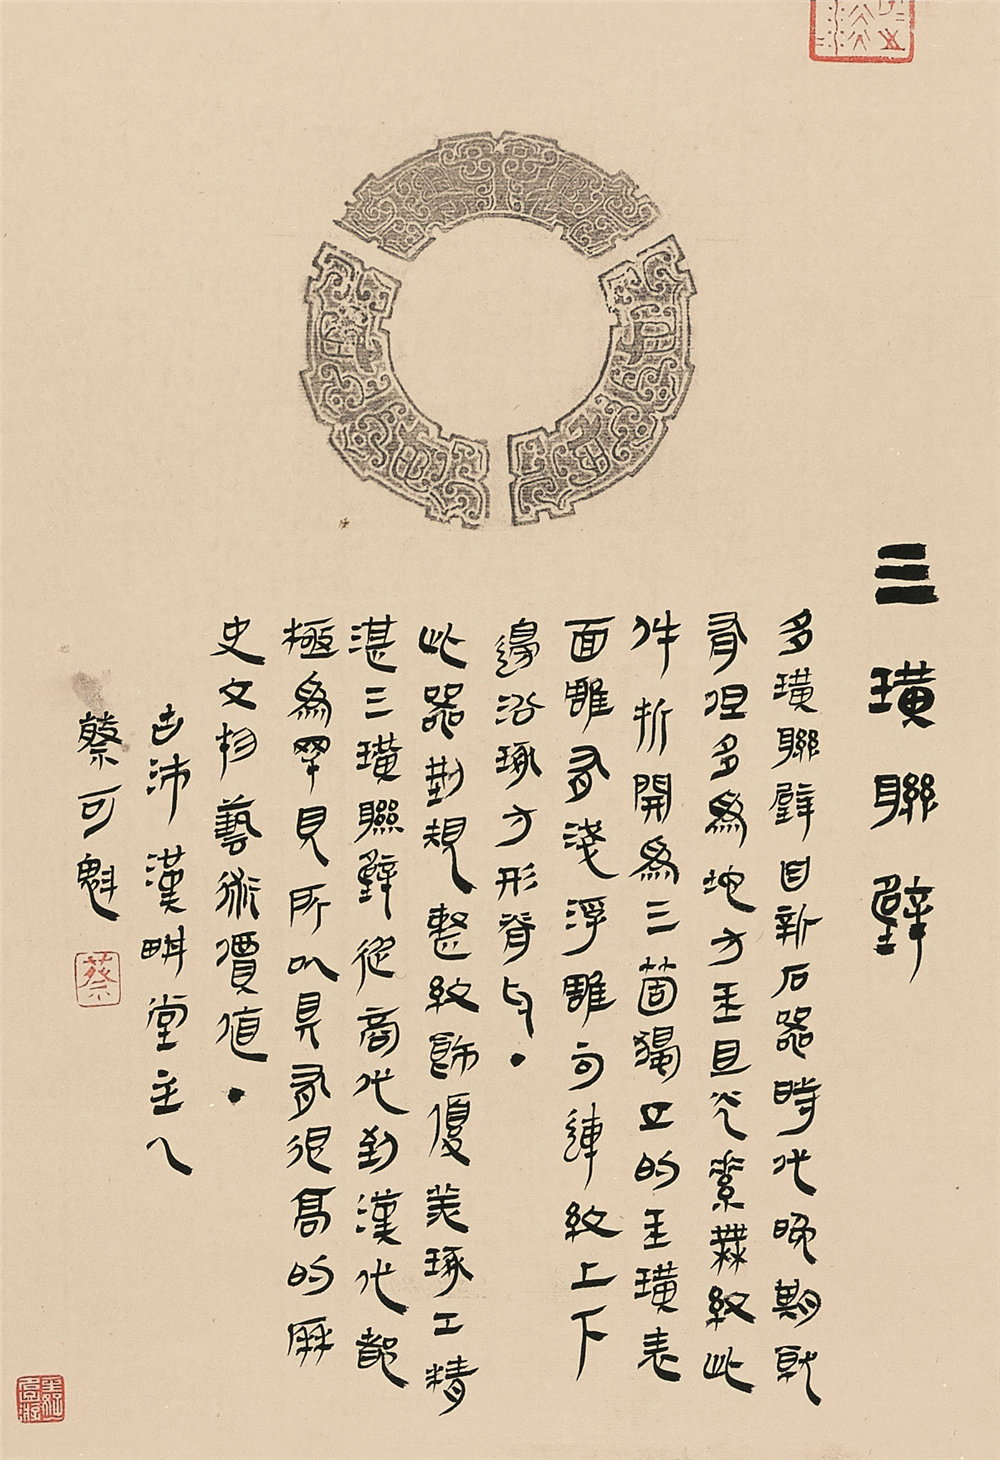 三璜聯璧
多璜聯璧自新石器時代晚期就
有但多為地方玉且光素無紋此
件拆開為三箇獨立的玉璜表
面雕有淺浮雕勾連紋上下
邊沿琢方形脊牙
此器對規整紋飾優美琢工精
湛三璜聯璧從商代到漢代都
極為罕見所以具有很高的歷
史文物藝術價值
古沛漢畊堂主人
蔡可魁
蔡